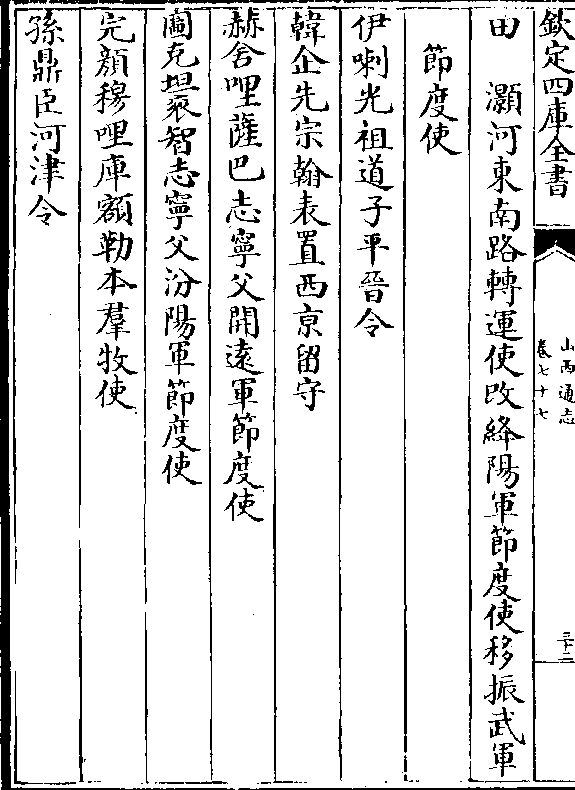 欽定四庫全書
山西通志
卷七十七
三十二
田　灝河東南路轉運使改絳陽軍節度使移振武軍
節度使
伊喇光祖道子平晉令
韓企先宗翰表置西京留守
赫舍哩薩巴志寧父開遠軍節度使
圖克坦褱智志寧父汾陽軍節度使
完顔穆哩庫額勒本羣牧使
孫鼎臣河津令